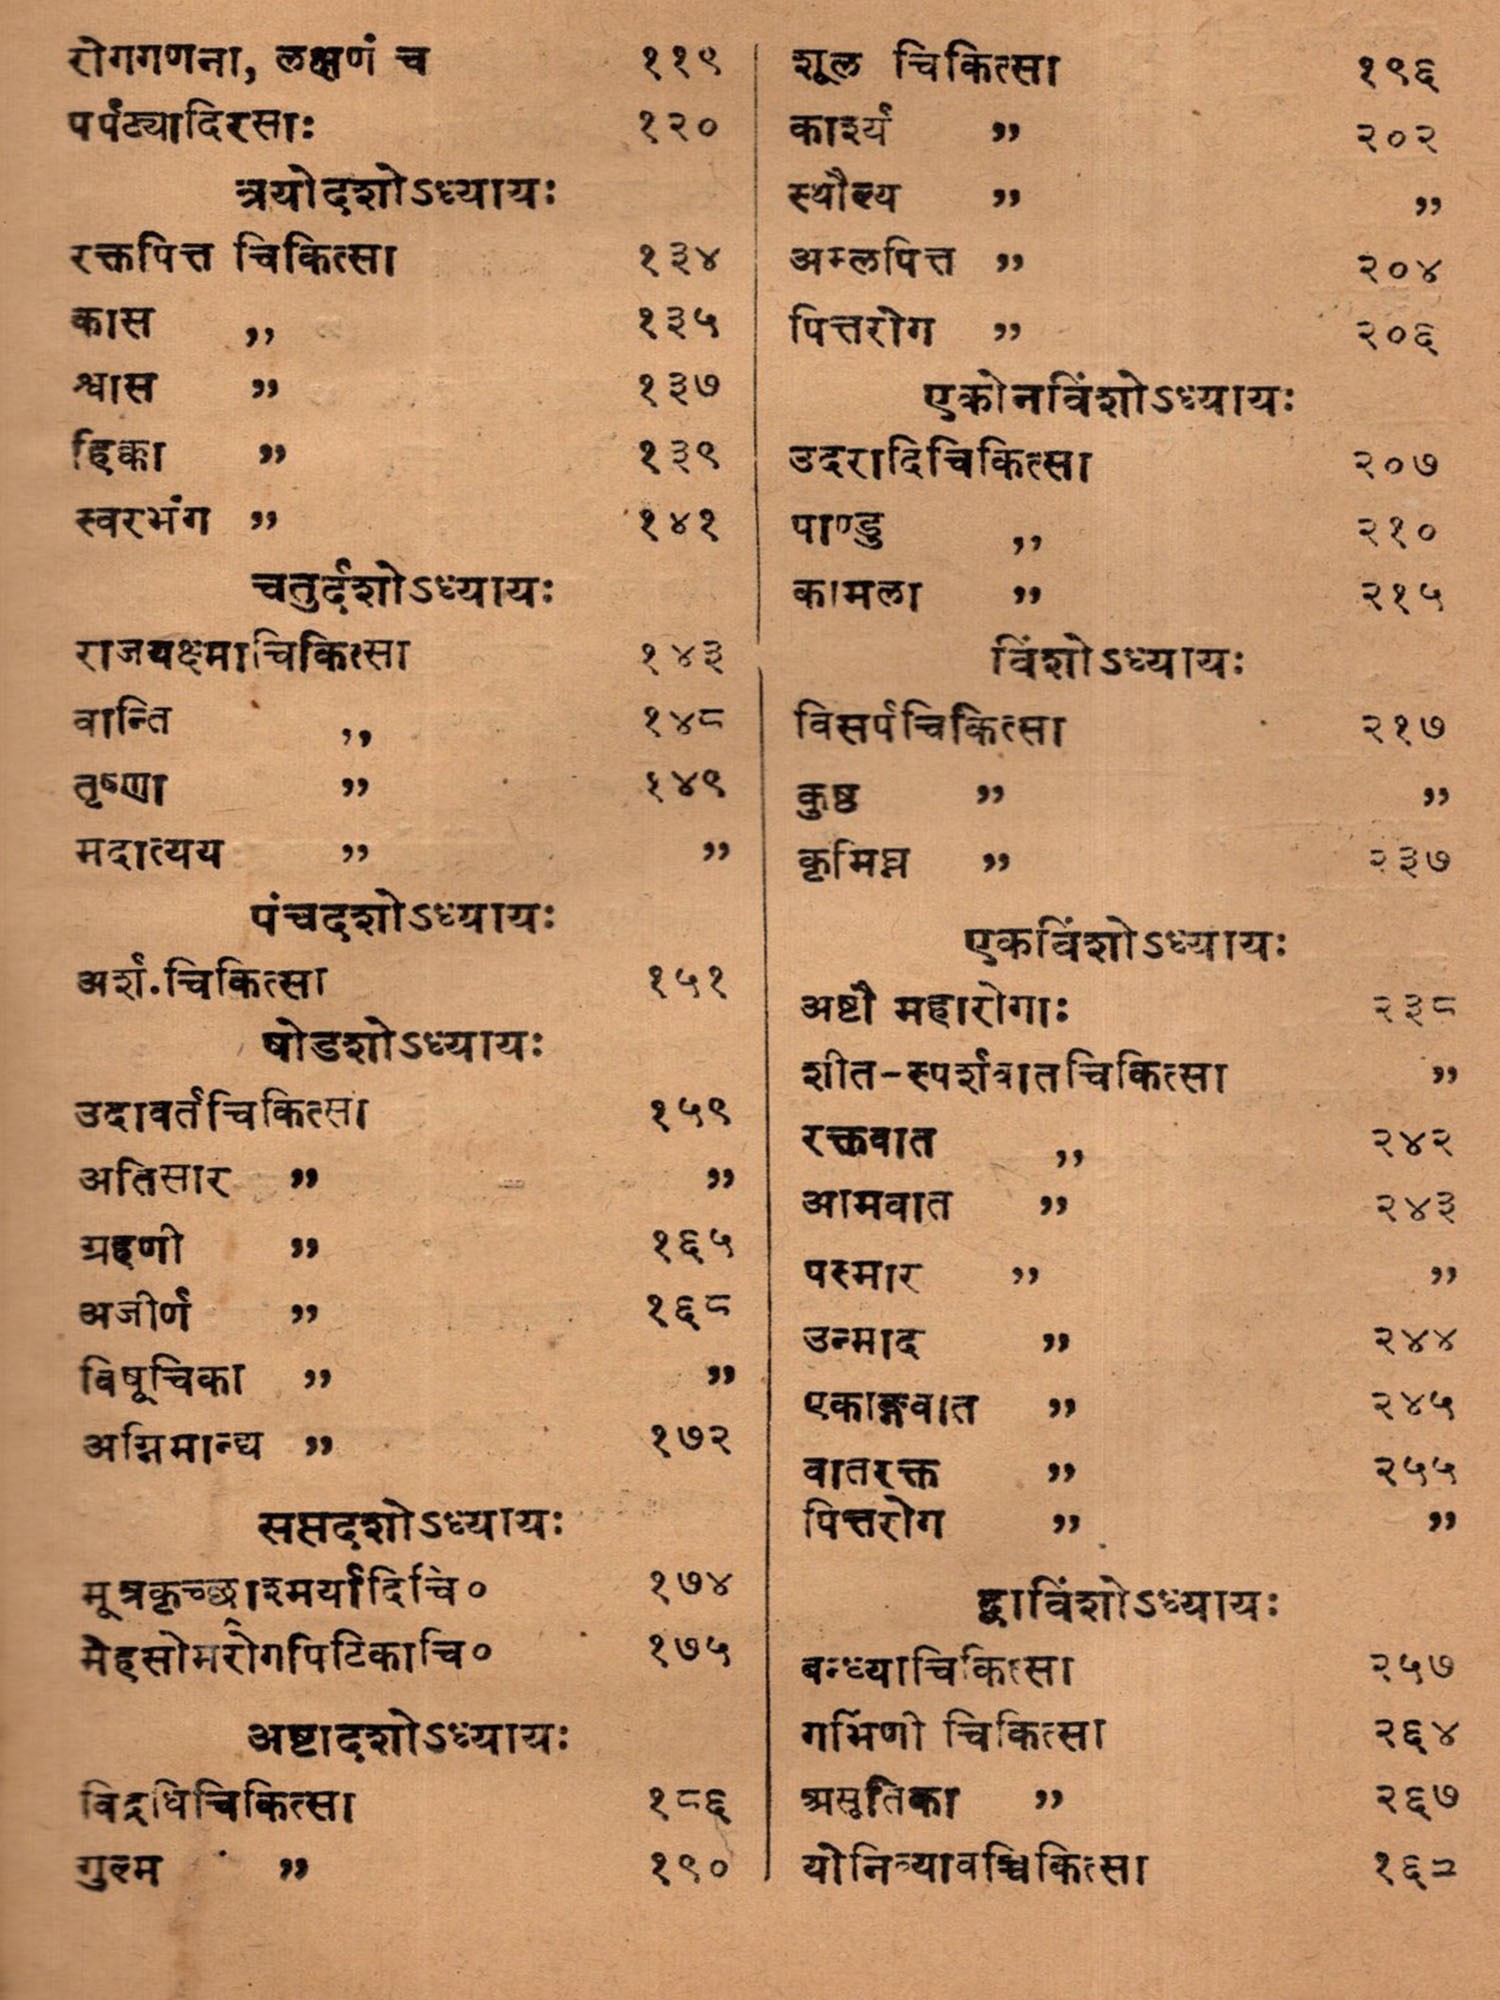 रोगगणना, लक्षणं च ११९
पर्पट्यादिरसाः १२०
त्रयोदशोऽध्यायः
रक्तपित्त चिकित्सा १३४
कास ,, १३५
श्वास ” १३७
हिक्का ” १३९
स्वरभंग ” १४१
चतुर्दशोऽध्यायः
राजयक्ष्माचिकित्सा १४३
वान्ति ,, १४८
तृष्णा ” १४९
मदात्यय ” ”
पंचदशोऽध्यायः
अर्श.चिकित्सा १५१
षोडशोऽध्यायः
उदावर्तचिकित्सा १५९
अतिसार ” ”
ग्रहणी ” १६५
अजीर्ण ” १६८
विषूचिका ” ”
अग्निमान्द्य ” १७२
सप्तदशोऽध्यायः
मूत्रकृच्छ्राश्मर्यादिचि० १७४
मेहसोमरोगपिटिकाचि० १७५
अष्टादशोऽध्यायः
विद्रधिचिकित्सा १८६
गुल्म ” १९०
शूल चिकित्सा १९६
कार्श्य ” २०२
स्थौल्य ” ”
अम्लपित्त ” २०४
पित्तरोग ” २०६
एकोनविंशोऽध्यायः
उदरादिचिकित्सा २०७
पाण्डु ,, २१०
कामला ” २१५
विंशोऽध्यायः
विसर्पचिकित्सा २१७
कुष्ठ ” ”
कृमिघ्न ” २३७
एकविंशोऽध्यायः
अष्टौ महारोगाः २३८
शीत-स्पर्शवातचिकित्सा ”
रक्तवात ,, २४२
आमवात ” २४३
पस्मार ” ”
उन्माद ” २४४
एकाङ्गवात ” २४५
वातरक्त ” २५५
पित्तरोग ” ”
द्वाविंशोऽध्यायः
बन्ध्याचिकित्सा २५७
गर्भिणी चिकित्सा २६४
असूतिका ” २६७
योनिव्यावश्चिकित्सा